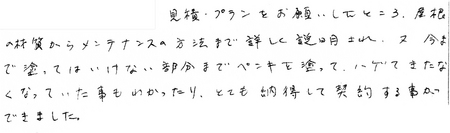 見積・プランをお願いしたところ、屋根
の材質からメンテナンスの方法まで詳しく説明され、又今ま
で塗ってはいけない部分までペンキを塗って、ハゲてきたな
くなっていた事もわかったり、とても納得して契約する事が
できました。